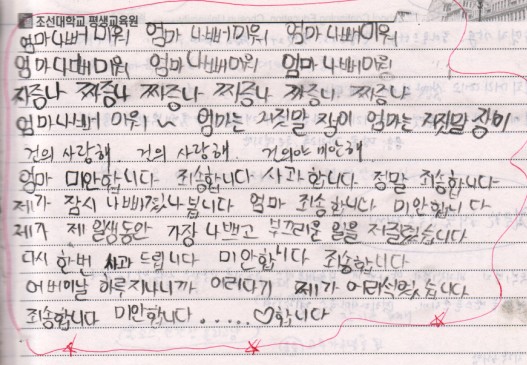 조선대학교 평생교육원
엄마나빠미워 엄마 나빠미워 엄마나빠미워
엄마나빠미워 엄마 나빠미워 엄마 나빠미워
짜증나 찌증나 찌증나 찌증나 짜증나 찌증나
엄마나빠 미워~ 엄마는 거짓말 쟁이 엄마는 거짓말 쟁이
건의 사랑해. 건의 사랑해. 건의야 미안해
엄마 미안합니다 죄송합니다 사과 합니다 정말 죄송합니다
제가 잠시 나빠졌나 봅니다 엄마 죄송합니다 미안합니다
제가 제 일생동안 가장 나쁘고 부끄러운 일을 저질렀습니다
다시 한번 사과 드립니다 미안합니다 죄송합니다
어버이날 하루지나니까 이러다니 제가 어리석었습니다
죄송합니다 미안합니다..... ♡합니다